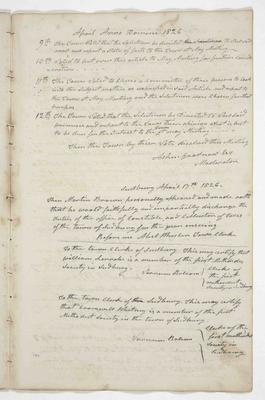 April Anno Domini 1826
9th The Town Voted that the Selectmen be directed to
and report a State of facts to the Town at May Meeting
10th Voted to put over this article to May Meeting for further consideration
11th The Town Voted to Choose a committee of three persons to look
into the Subject matter as expressed in said Article and report to
the Town at May Meeting and the Selectmen were Chosen for that
purpose
12th The Town Voted that the Selectmen be Directed to
and report to the Town what is best
to be done for the Interest of the Town at May Meeting
Then the Town by their Vote dissolved this Meeting
Asher Goodnow Jr
Moderator
Sudbury April 17th 1826.
Then Martin Brown personally appeared and made oath
that he would faithfully and impartially discharge the
duties of the office of Constable and Collector of taxes
of the town of Sudbury for the year ensuing
Before me Abel Wheeler Town Clerk
To the town Clerk of Sudbury. This may certify that
William is a member of the first Methodist
Society in Sudbury.
Clerk of
the first
methodist
Society in Sudbury
To the town Clerk of Sudbury. This may certify
that is a member of the first
Methodist Society in the town of Sudbury
Clerk of the
first methodist
society in
Sudbury